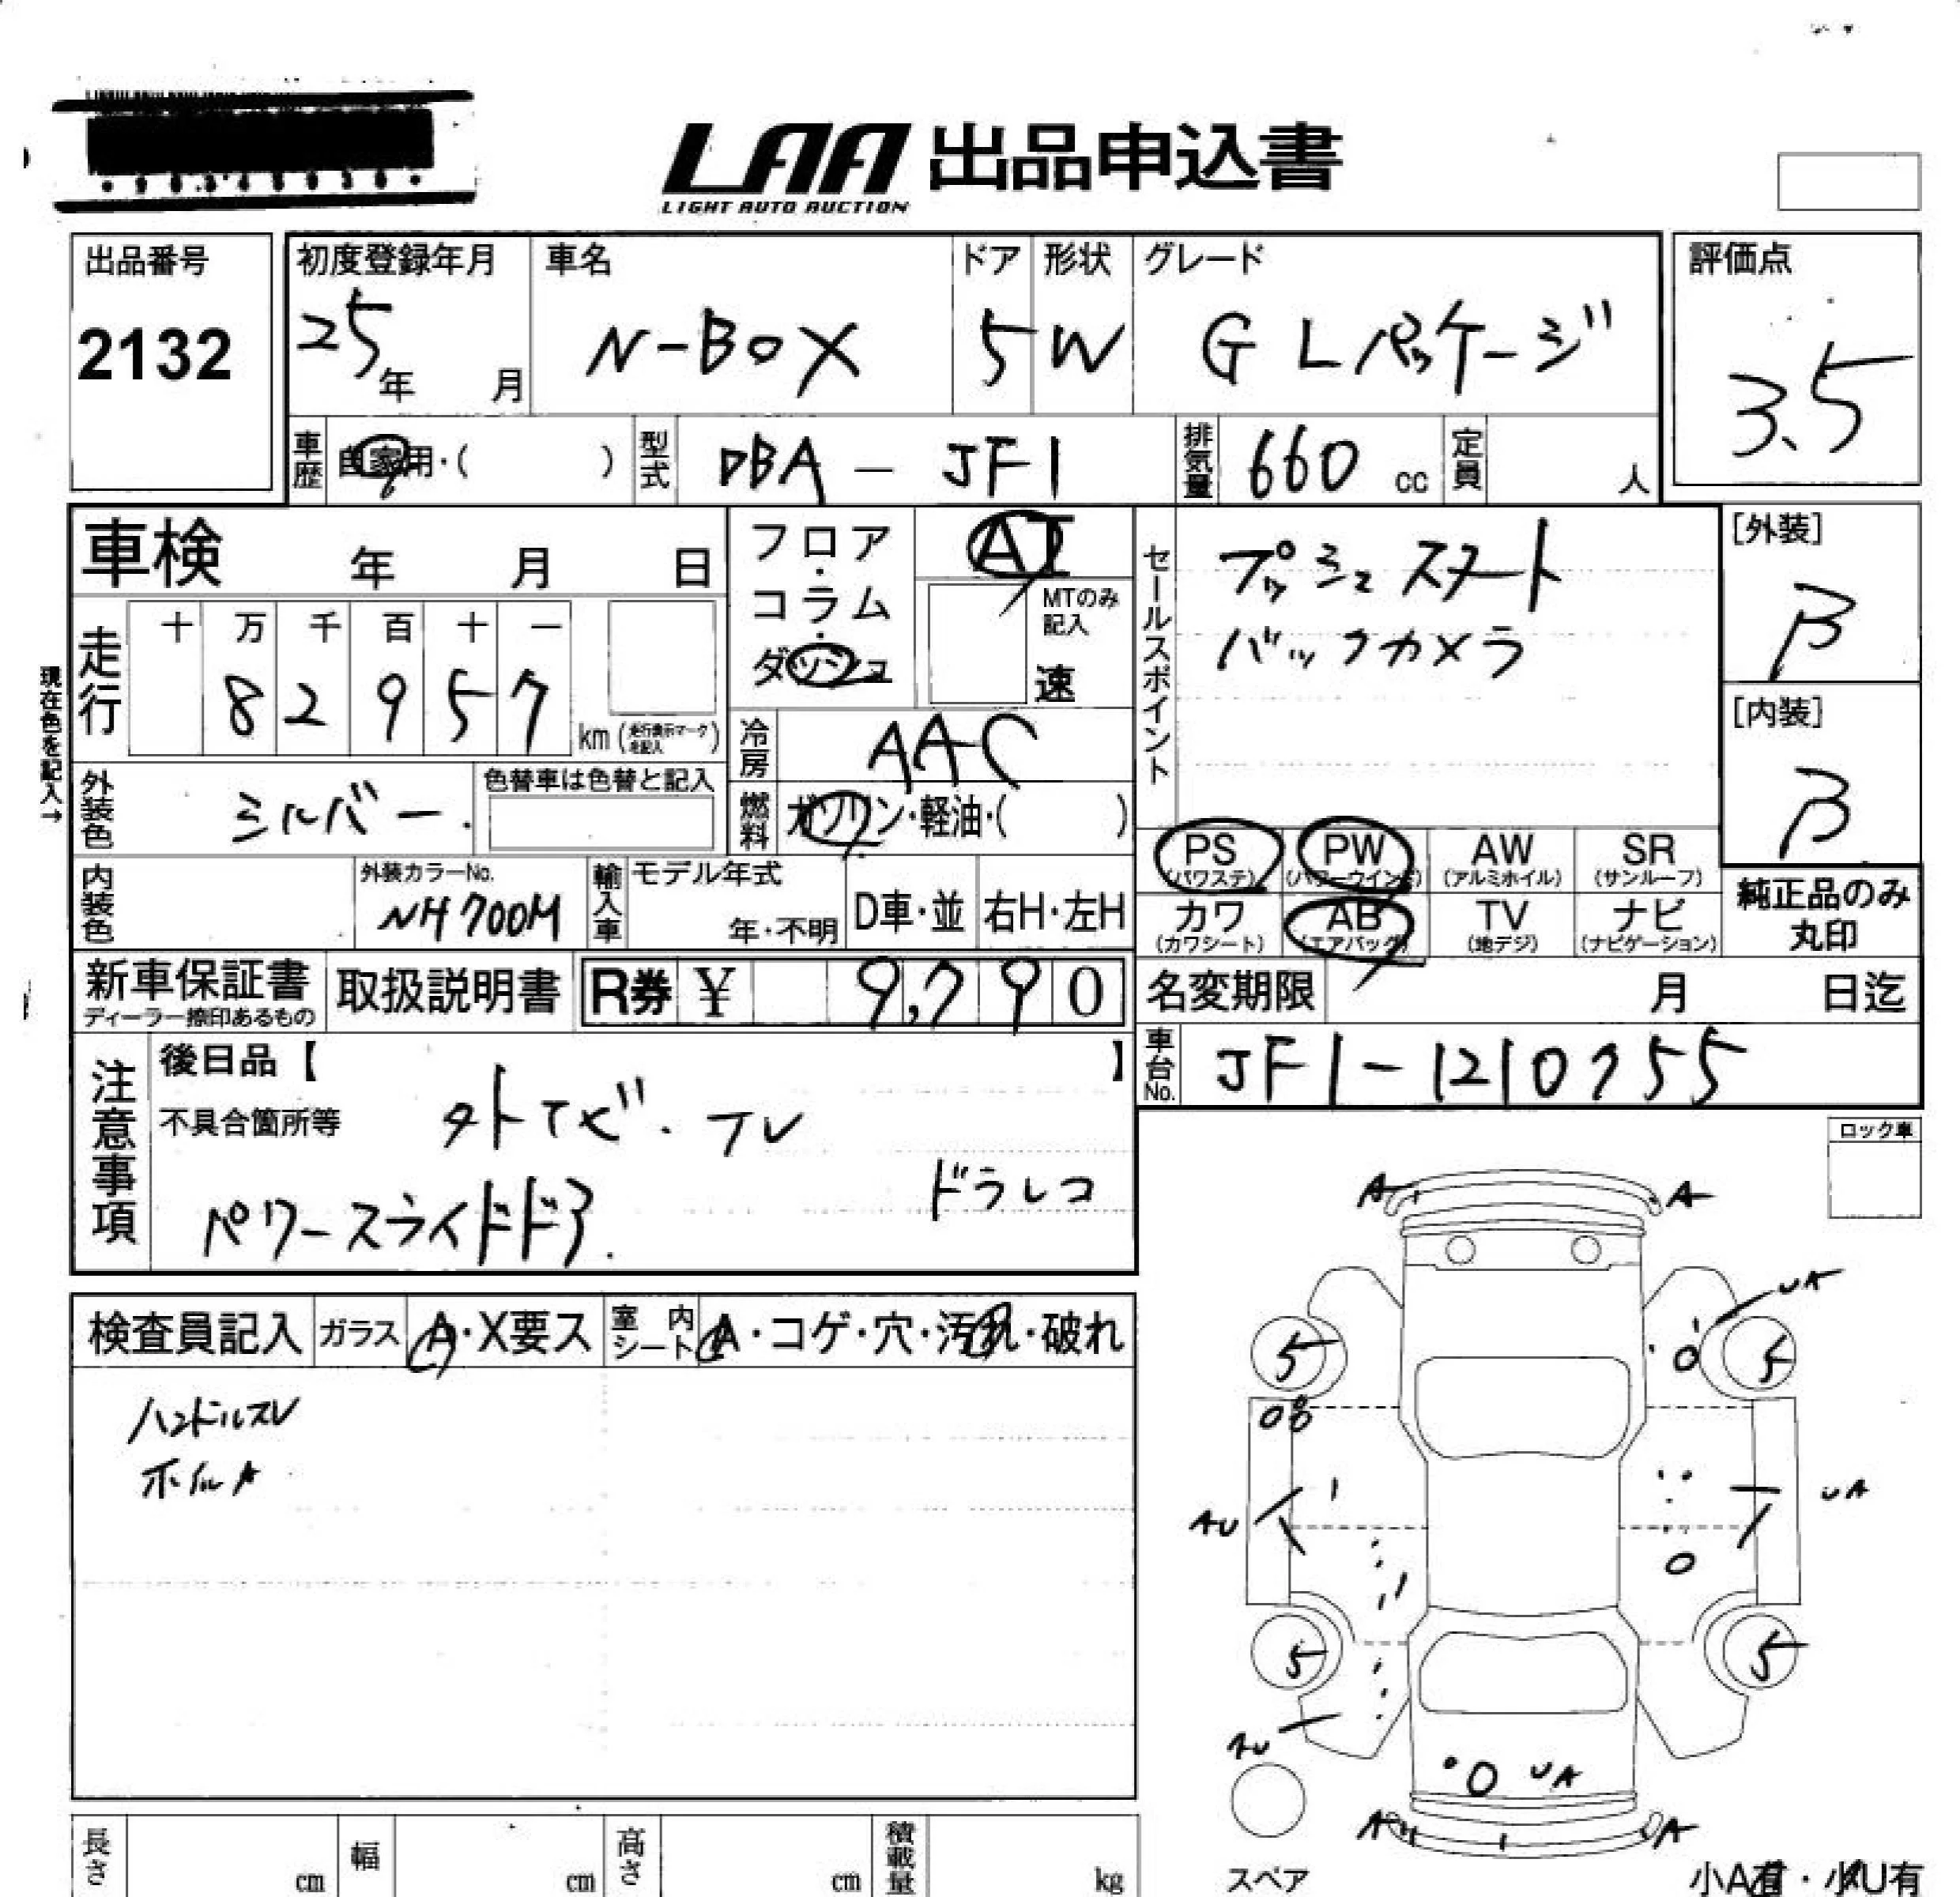 LAA 出品申込書
LIGHT AUTO AUCTION
出品番号
2132
初度登録年月
25年 月
車名
N-BOX
ドア
5
形状
W
グレード
G Lパッケージ
評価点
3.5
車歴
自家用・( )
型式
DBA - JF1
排気量
660 cc
定員
人
車検 年 月 日
フロア・コラム・ダッシュ
AT
MTのみ記入
速
セールスポイント
プッシュスタート
バックカメラ
[外装]
B
[内装]
B
現在色を記入→
走行
十 万 千 百 十 一
8 2 9 5 7
km (走行表示マークを記入)
冷房
AAC
外装色
シルバー
色替車は色替と記入
燃料
ガソリン・軽油・( )
PS
(パワステ)
PW
(パワーウインド)
AW
(アルミホイル)
SR
(サンルーフ)
カワ
(カワシート)
AB
(エアバッグ)
TV
(地デジ)
ナビ
(ナビゲーション)
純正品のみ
丸印
内装色
外装カラーNo.
NH700M
輸入車
モデル年式
年・不明
D車・並
右H・左H
新車保証書
ディーラー捺印あるもの
取扱説明書
R券 ¥ 9,790
名変期限 月 日迄
車台No.
JF1-1210755
注意事項
後日品【 】
不具合箇所等
TV
ドラレコ
パワースライドドア
ロック車
検査員記入
ガラス
A・X要ス
室内シート
A・コゲ・穴・汚れ・破れ
ハンドルスレ
ホイルA
A A
UA
5 5
AU UA
5 5
AU
UA
A A
スペア
小A有・小U有
長さ cm
幅 cm
高さ cm
積載量 kg